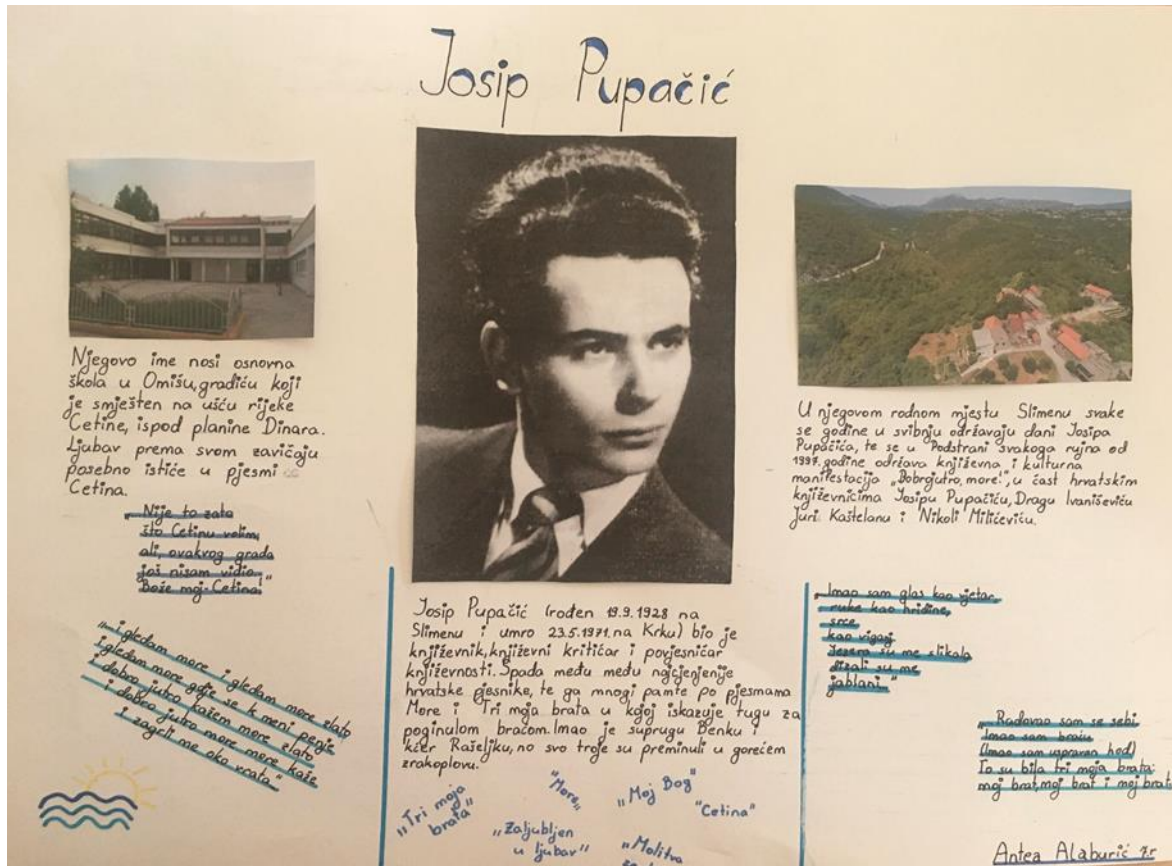 Josip Pupačić
Njegovo ime nosi osnovna
škola u Omišu, gradiću koji
je smješten na ušću rijeke
Cetine, ispod planine Dinara.
Ljubav prema svom zavičaju
posebno ističe u pjesmi
Cetina.
„Nije to zato
što Cetinu volim,
ali, ovakvog grada
još nisam vidio.
Bože moj Cetina!"
„...i gledam more i gledam more zlato
i gledam more gdje se k meni penje
i dobro jutro kažem more zlato
i dobro jutro more more kaže
i zagrli me oko vrata"
Josip Pupačić (rođen 19.9.1928 na
Slimenu i umro 23.5.1971. na Krku) bio je
književnik, književni kritičar i povjesničar
književnosti. Spada među među najcjenjenije
hrvatske pjesnike, te ga mnogi pamte po pjesmama
More i Tri moja brata u kojoj iskazuje tugu za
poginulom braćom. Imao je suprugu Benku i
kćer Rašeljku, no svo troje su preminuli u gorećem
zrakoplovu.
„Tri moja
brata"
"More„
„Moj Bog"
"Cetina"
„Zaljubljen
u ljubav"
„Molitva
U njegovom rodnom mjestu Slimenu svake
se godine u svibnju održavaju dani Josipa
Pupačića, te se u Podstrani svakoga rujna od
1997. godine održava književna i kulturna
manifestacija „Dobrojutro, more!", u čast hrvatskim
književnicima Josipu Pupačiću, Dragu Ivaniševiću
Juri Kaštelanu i Nikoli Milićeviću.
„Imao sam glas kao vjetar,
ruke kao hridine,
srce
kao viganj
Jezera su me slikala
dizali su me
jablani..."
„Radovao sam se sebi
Imao sam braću
(Imao sam uspravan hod)
To su bila tri moja brata:
moj brat, moj brat i moj brat
Antea Alaburić 7r